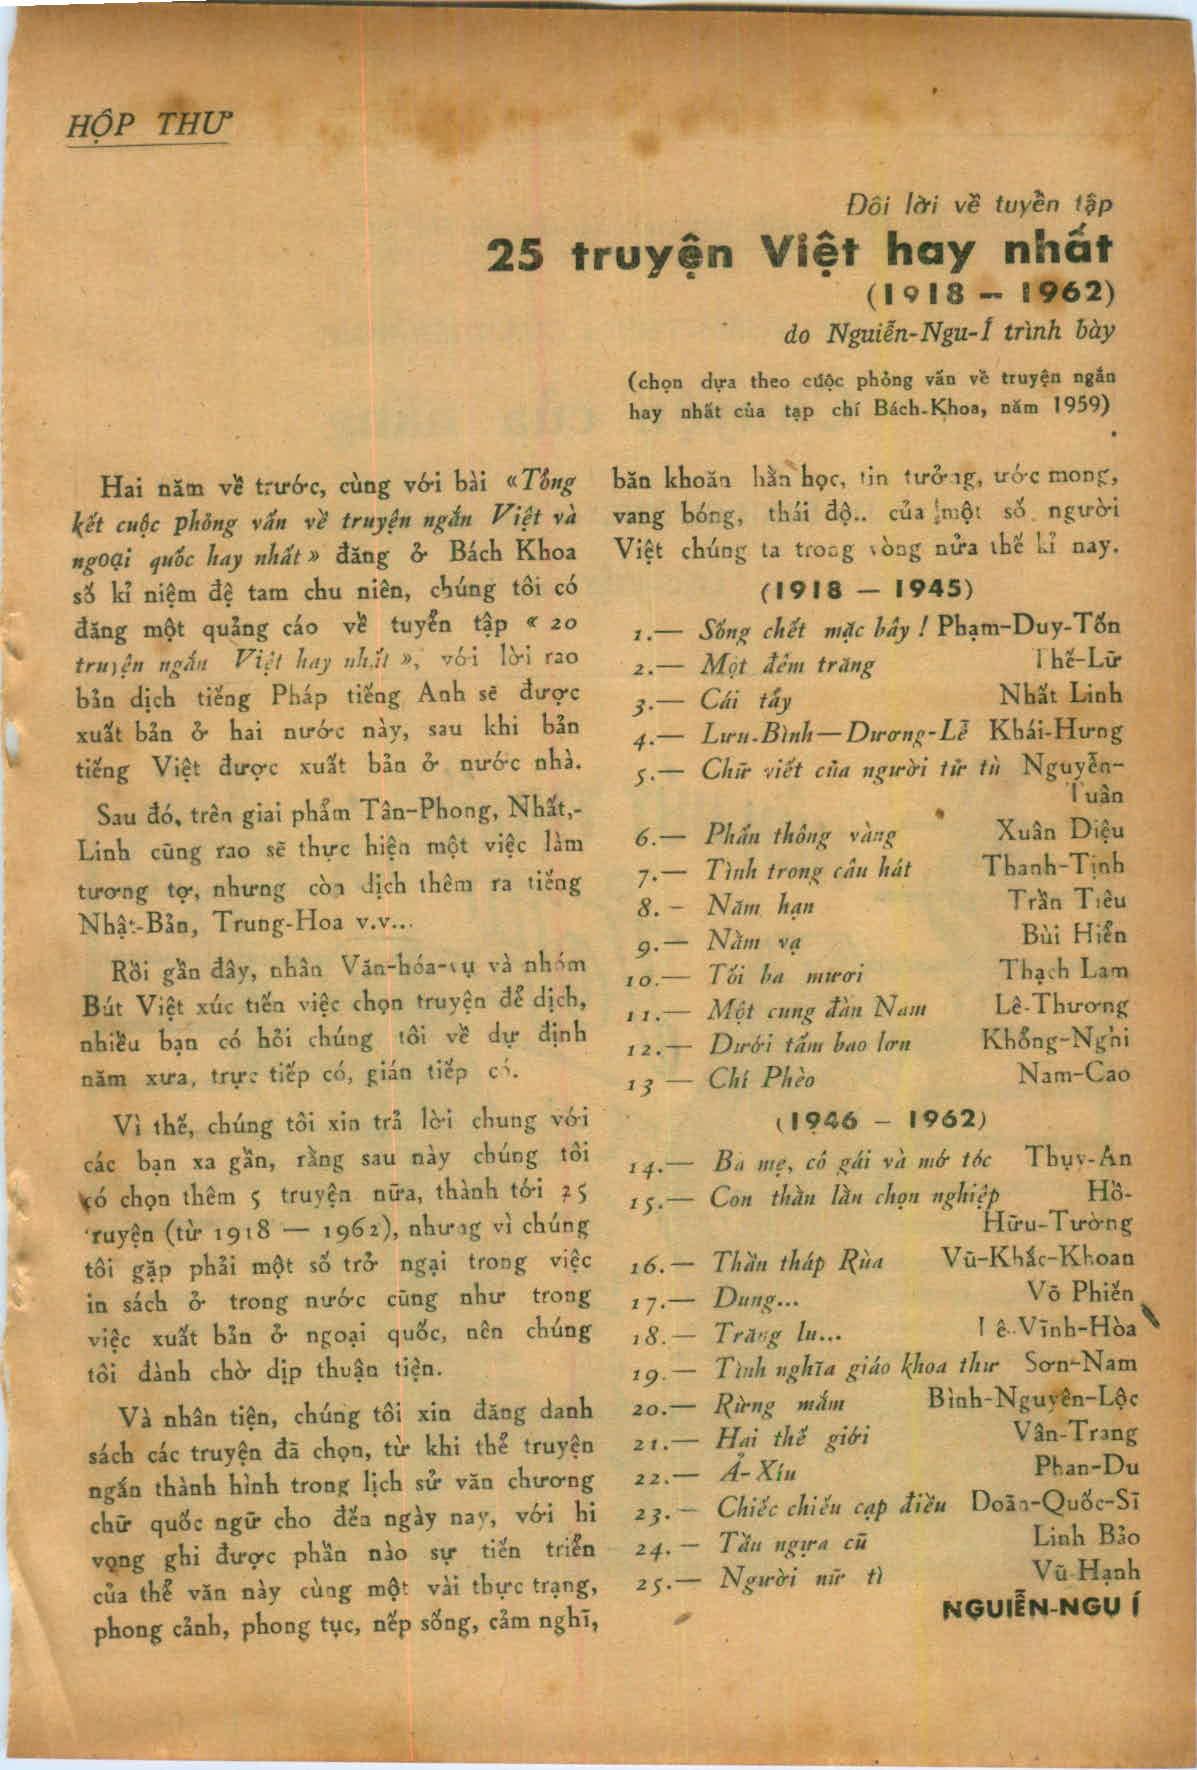 HỘP THƯ
Đôi lời về tuyển tập
25 truyện Việt hay nhất
(1918 — 1962)
do Nguiễn-Ngu-Í trình bày
(chọn dựa theo cuộc phỏng vấn về truyện ngắn
hay nhất của tạp chí Bách-Khoa, năm 1959)
Hai năm về trước, cùng với bài «Tổng
kết cuộc phỏng vấn về truyện ngắn Việt và
ngoại quốc hay nhất» đăng ở Bách Khoa
số kỉ niệm đệ tam chu niên, chúng tôi có
đăng một quảng cáo về tuyển tập « 20
truyện ngắn Việt hay nhất », với lời rao
bản dịch tiếng Pháp tiếng Anh sẽ được
xuất bản ở hai nước này, sau khi bản
tiếng Việt được xuất bản ở nước nhà.
Sau đó, trên giai phẩm Tân-Phong, Nhất,-
Linh cũng rao sẽ thực hiện một việc làm
tương tợ, nhưng còn dịch thêm ra tiếng
Nhật-Bản, Trung-Hoa v.v...
Rồi gần đây, nhân Văn-hóa-vụ và nhóm
Bút Việt xúc tiến việc chọn truyện để dịch,
nhiều bạn có hỏi chúng tôi về dự định
năm xưa, trực tiếp có, gián tiếp có.
Vì thế, chúng tôi xin trả lời chung với
các bạn xa gần, rằng sau này chúng tôi
có chọn thêm 5 truyện nữa, thành tới 25
truyện (từ 1918 — 1962), nhưng vì chúng
tôi gặp phải một số trở ngại trong việc
in sách ở trong nước cũng như trong
việc xuất bản ở ngoại quốc, nên chúng
tôi đành chờ dịp thuận tiện.
Và nhân tiện, chúng tôi xin đăng danh
sách các truyện đã chọn, từ khi thể truyện
ngắn thành hình trong lịch sử văn chương
chữ quốc ngữ cho đến ngày nay, với hi
vọng ghi được phần nào sự tiến triển
của thể văn này cùng một vài thực trạng,
phong cảnh, phong tục, nếp sống, cảm nghĩ,
băn khoăn hằn học, tin tưởng, ước mong,
vang bóng, thái độ.. của một số người
Việt chúng ta trong vòng nửa thế kỉ nay.
(1918 — 1945)
1.— Sống chết mặc bây ! Phạm-Duy-Tốn
2.— Một đêm trăng Thế-Lữ
3.— Cái tẩy Nhất Linh
4.— Lưu-Bình—Dương-Lễ Khái-Hưng
5.— Chữ viết của người tử tù Nguyễn-
Tuân
6.— Phấn thông vàng Xuân Diệu
7.— Tình trong câu hát Thanh-Tịnh
8. - Năm hạn Trần Tiêu
9.— Nằm vạ Bùi Hiển
10.— Tối ba mươi Thạch Lam
11.— Một cung đàn Nam Lê-Thương
12.— Dưới tấm bao lơn Khổng-Nghi
13 — Chí Phèo Nam-Cao
(1946 — 1962)
14.— Bà mẹ, cô gái và mớ tóc Thụy-An
15.— Con thằn lằn chọn nghiệp Hồ-
Hữu-Tường
16.— Thần tháp Rùa Vũ-Khắc-Khoan
17.— Dung... Võ Phiến
18.— Trăng lu... Lê-Vĩnh-Hòa
19.— Tình nghĩa giáo khoa thư Sơn-Nam
20.— Rừng mắm Bình-Nguyên-Lộc
21.— Hai thế giới Vân-Trang
22.— Ả-Xíu Phan-Du
23.— Chiếc chiếu cạp điều Doãn-Quốc-Sĩ
24.— Tầu ngựa cũ Linh Bảo
25.— Người nữ tì Vũ-Hạnh
NGUIỄN-NGU Í